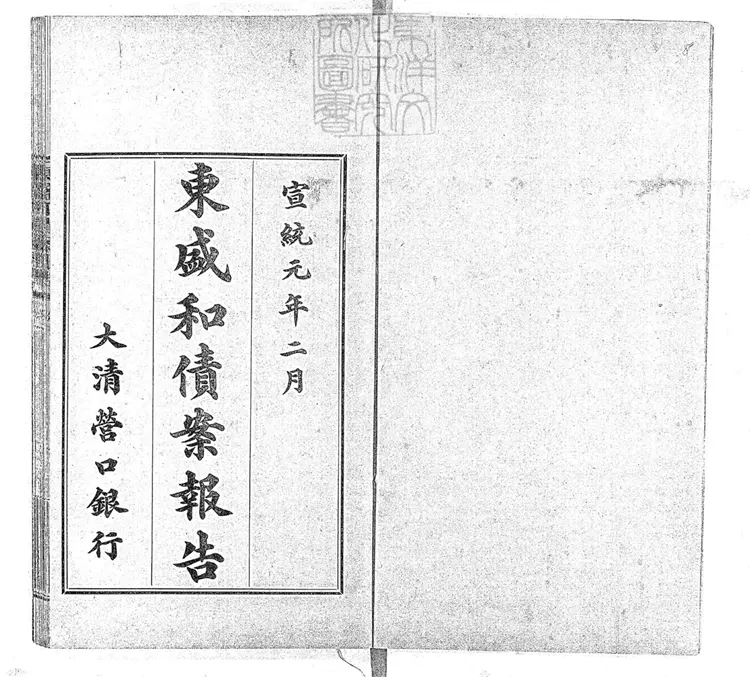 宣統元年二月
東盛和債案報告
大清營口銀行
東洋文
化研究
所圖書